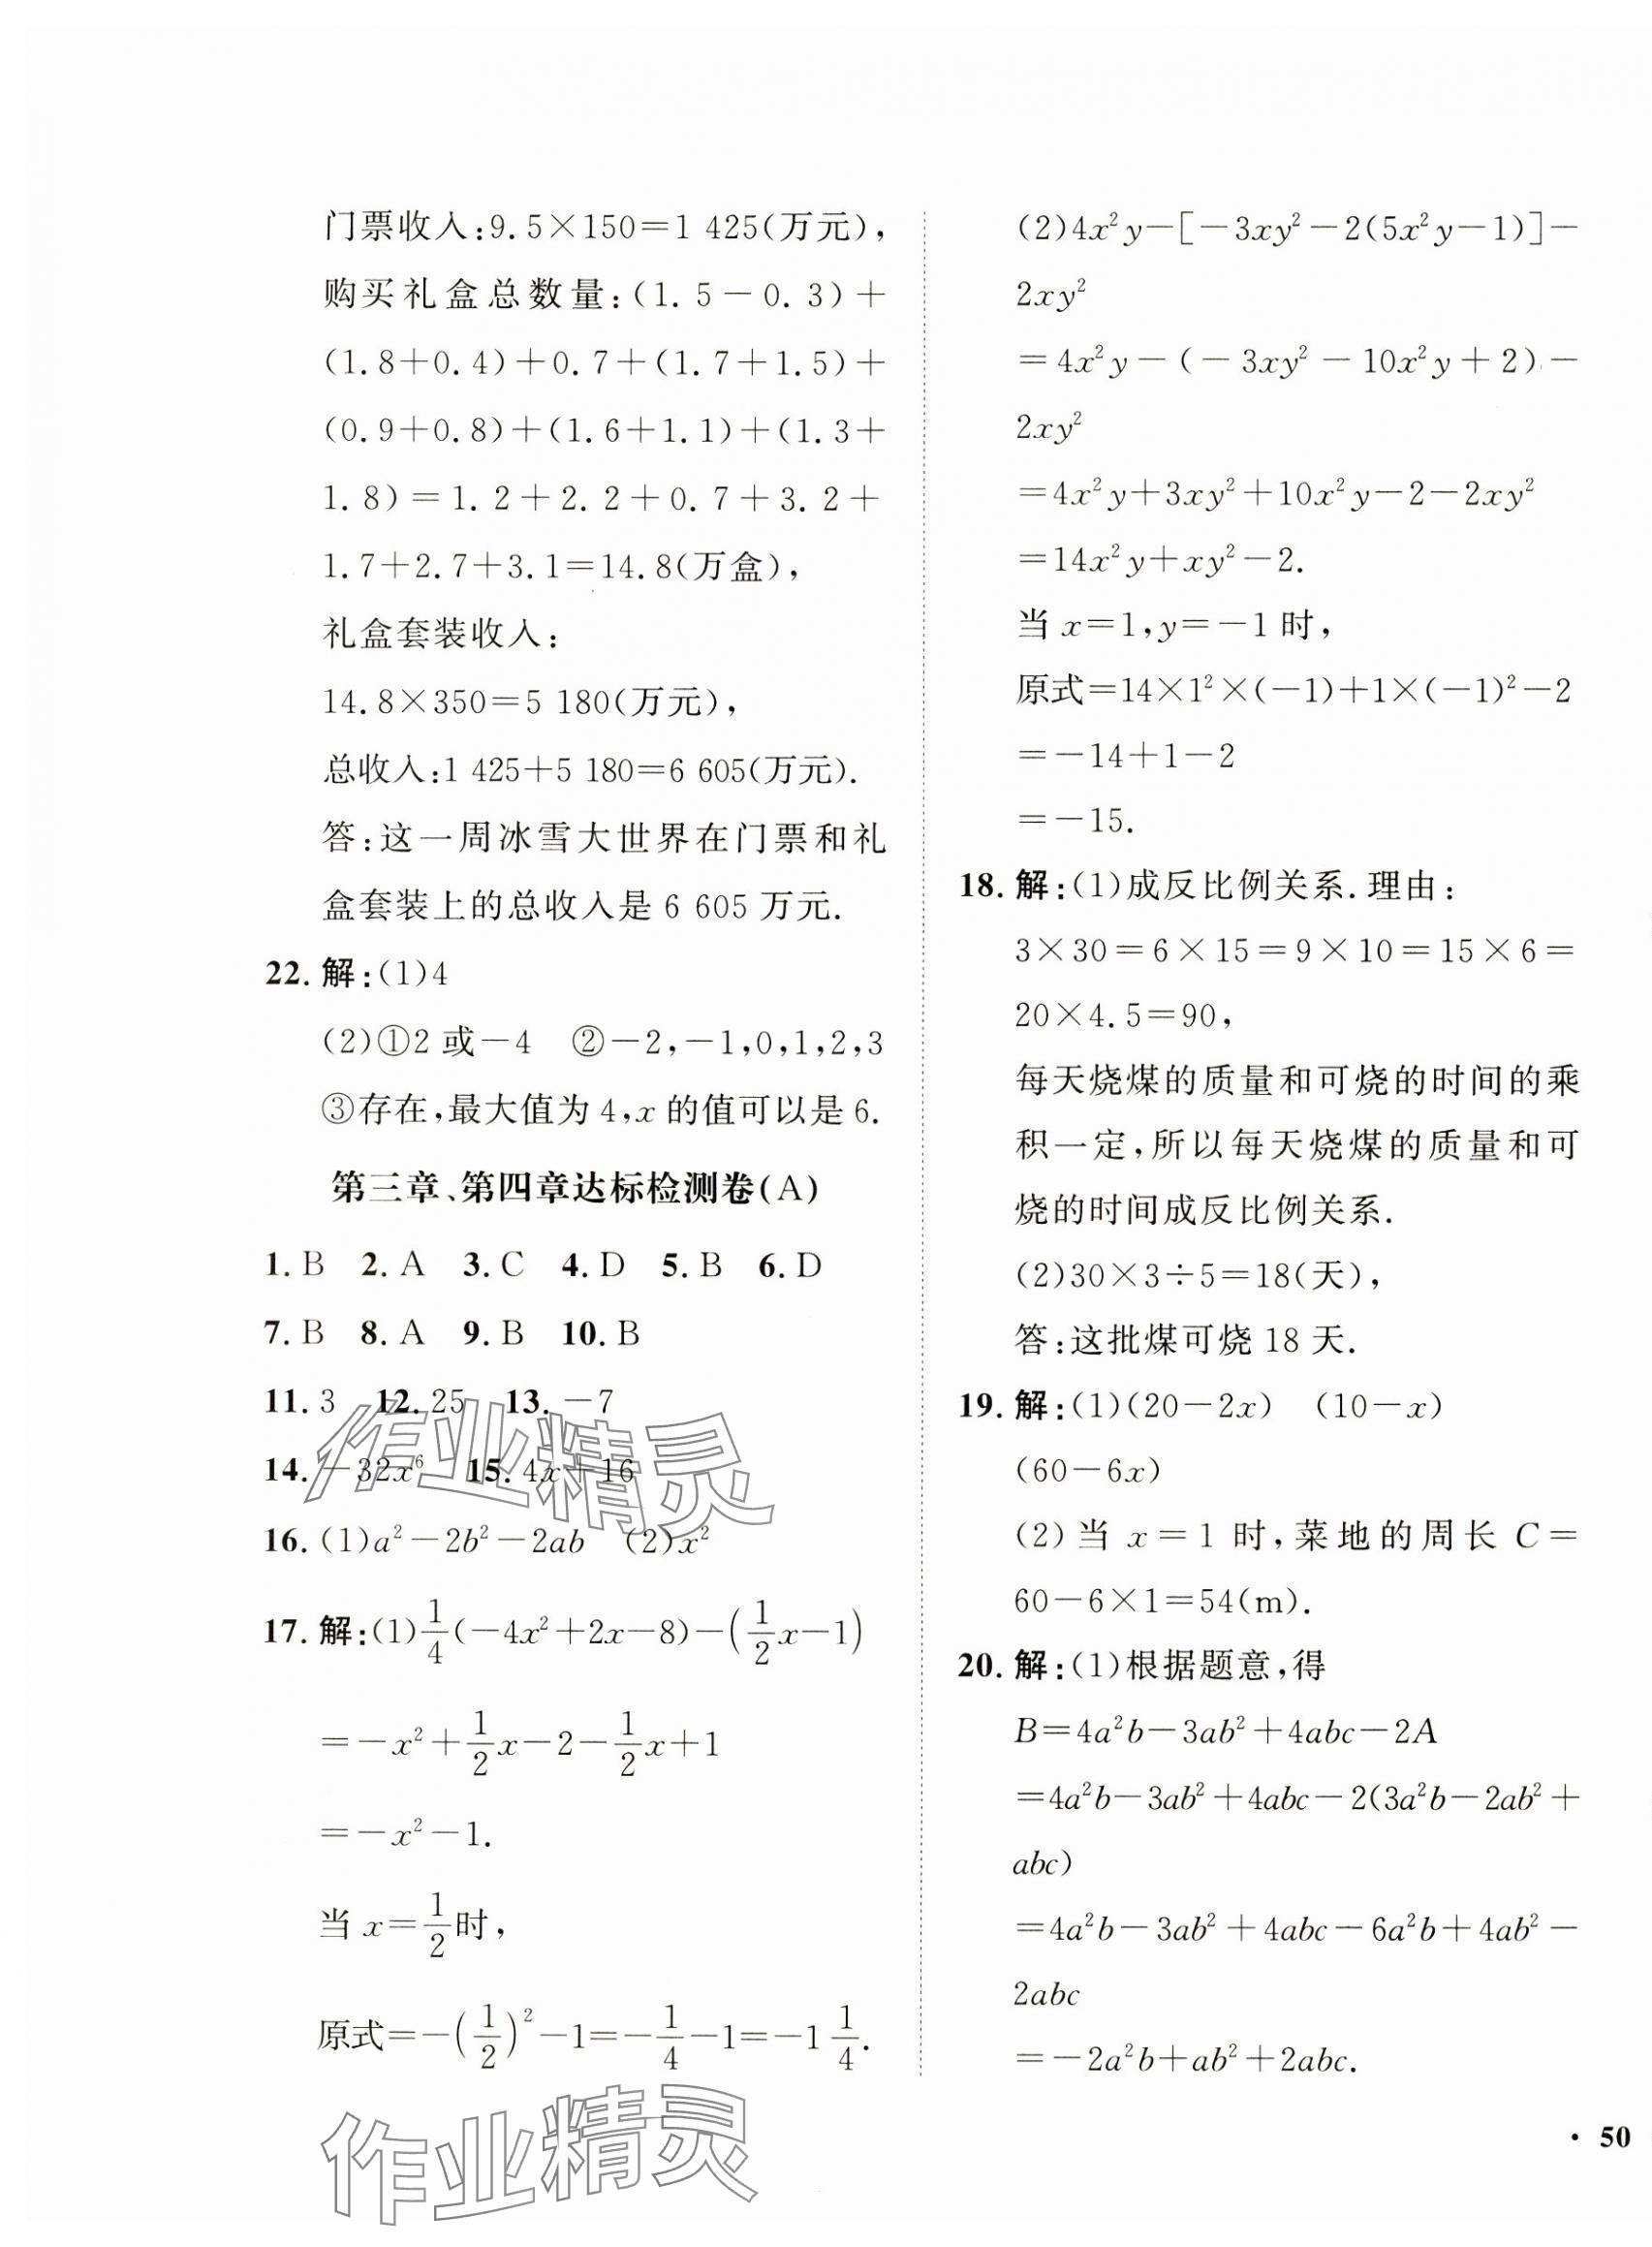 门票收入:9.5×150=1 425(万元),
购买礼盒总数量:(1.5-0.3)+
(1.8+0.4)+0.7+(1.7+1.5)+
(0.9+0.8)+(1.6+1.1)+(1.3+
1.8)=1.2+2.2+0.7+3.2+
1.7+2.7+3.1=14.8(万盒),
礼盒套装收入:
14.8×350=5 180(万元),
总收入:1 425+5 180=6 605(万元).
答:这一周冰雪大世界在门票和礼
盒套装上的总收入是 6 605 万元.
22. 解:(1)4
(2)①2 或-4 ②-2,-1,0,1,2,3
③存在,最大值为 4,x 的值可以是 6.
第三章、第四章达标检测卷(A)
1. B 2. A 3. C 4. D 5. B 6. D
7. B 8. A 9. B 10. B
11. 3 12. 25 13. -7
14. -32x⁶ 15. 4x+16
16. (1)a²-2b²-2ab (2)x²
17. 解:(1)1/4(-4x²+2x-8)-(1/2x-1)
=-x²+1/2x-2-1/2x+1
=-x²-1.
当 x=1/2时,
原式=-(1/2)²-1=-1/4-1=-1 1/4.
(2)4x²y-[-3xy²-2(5x²y-1)]-
2xy²
=4x²y-(-3xy²-10x²y+2)-
2xy²
=4x²y+3xy²+10x²y-2-2xy²
=14x²y+xy²-2.
当 x=1,y=-1 时,
原式=14×1²×(-1)+1×(-1)²-2
=-14+1-2
=-15.
18. 解:(1)成反比例关系.理由:
3×30=6×15=9×10=15×6=
20×4.5=90,
每天烧煤的质量和可烧的时间的乘
积一定,所以每天烧煤的质量和可
烧的时间成反比例关系.
(2)30×3÷5=18(天),
答:这批煤可烧 18 天.
19. 解:(1)(20-2x) (10-x)
(60-6x)
(2)当 x=1 时,菜地的周长 C=
60-6×1=54(m).
20. 解:(1)根据题意,得
B=4a²b-3ab²+4abc-2A
=4a²b-3ab²+4abc-2(3a²b-2ab²+
abc)
=4a²b-3ab²+4abc-6a²b+4ab²-
2abc
=-2a²b+ab²+2abc.
· 50
作业精灵
作业精灵